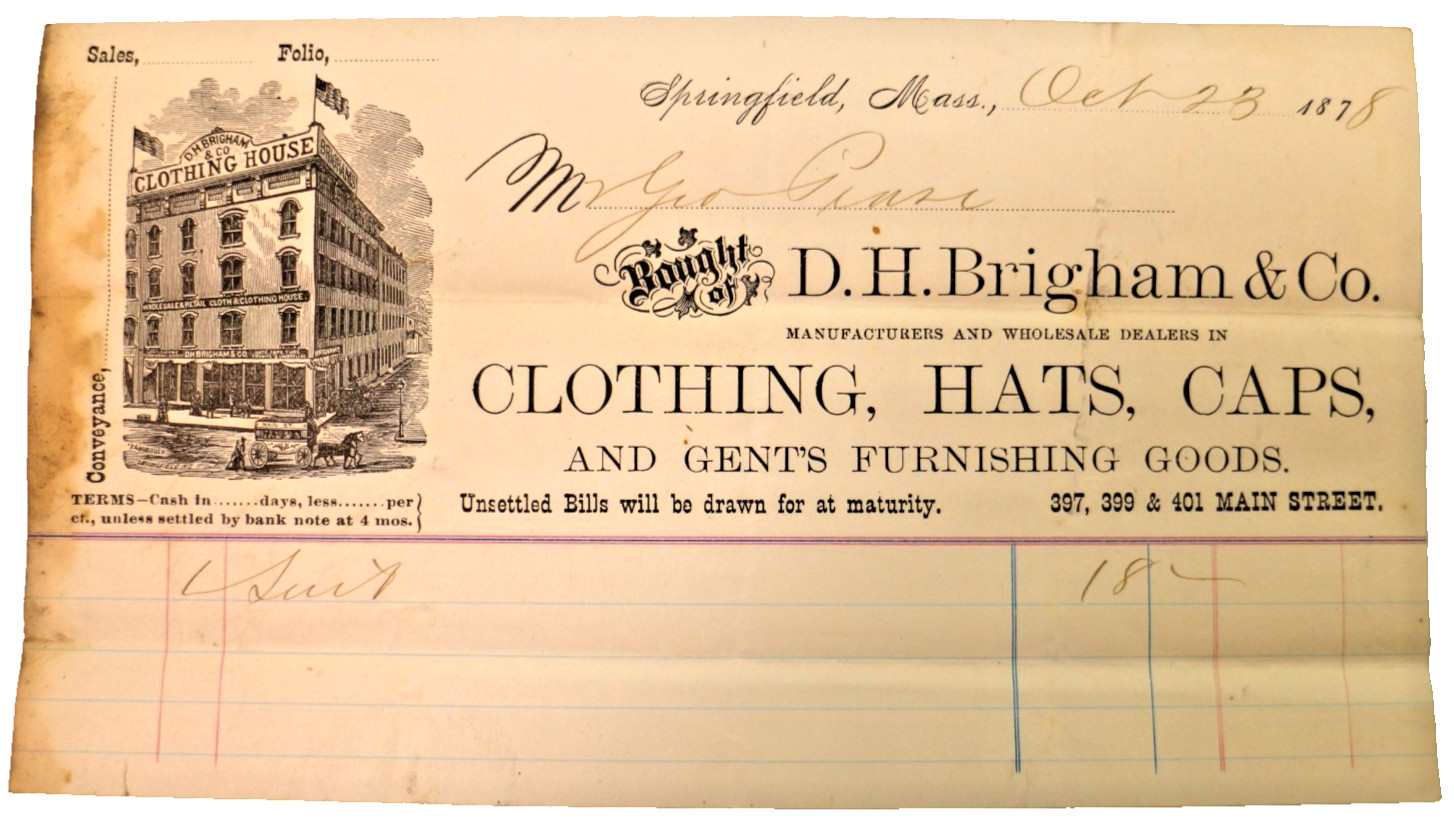 Sales, Folio,
Springfield, Mass., Oct 23 1878
Mr Geo Pease
D.H. BRIGHAM
& CO
CLOTHING HOUSE
BRIGHAM'S
WHOLESALE & RETAIL CLOTH & CLOTHING HOUSE.
D.H. BRIGHAM & CO.
MAIN ST
Conveyance,
Bought of D. H. Brigham & Co.
MANUFACTURERS AND WHOLESALE DEALERS IN
CLOTHING, HATS, CAPS,
AND GENT'S FURNISHING GOODS.
TERMS—Cash in.......days, less.......per
ct., unless settled by bank note at 4 mos.
Unsettled Bills will be drawn for at maturity. 397, 399 & 401 MAIN STREET.
1 Suit 18 —